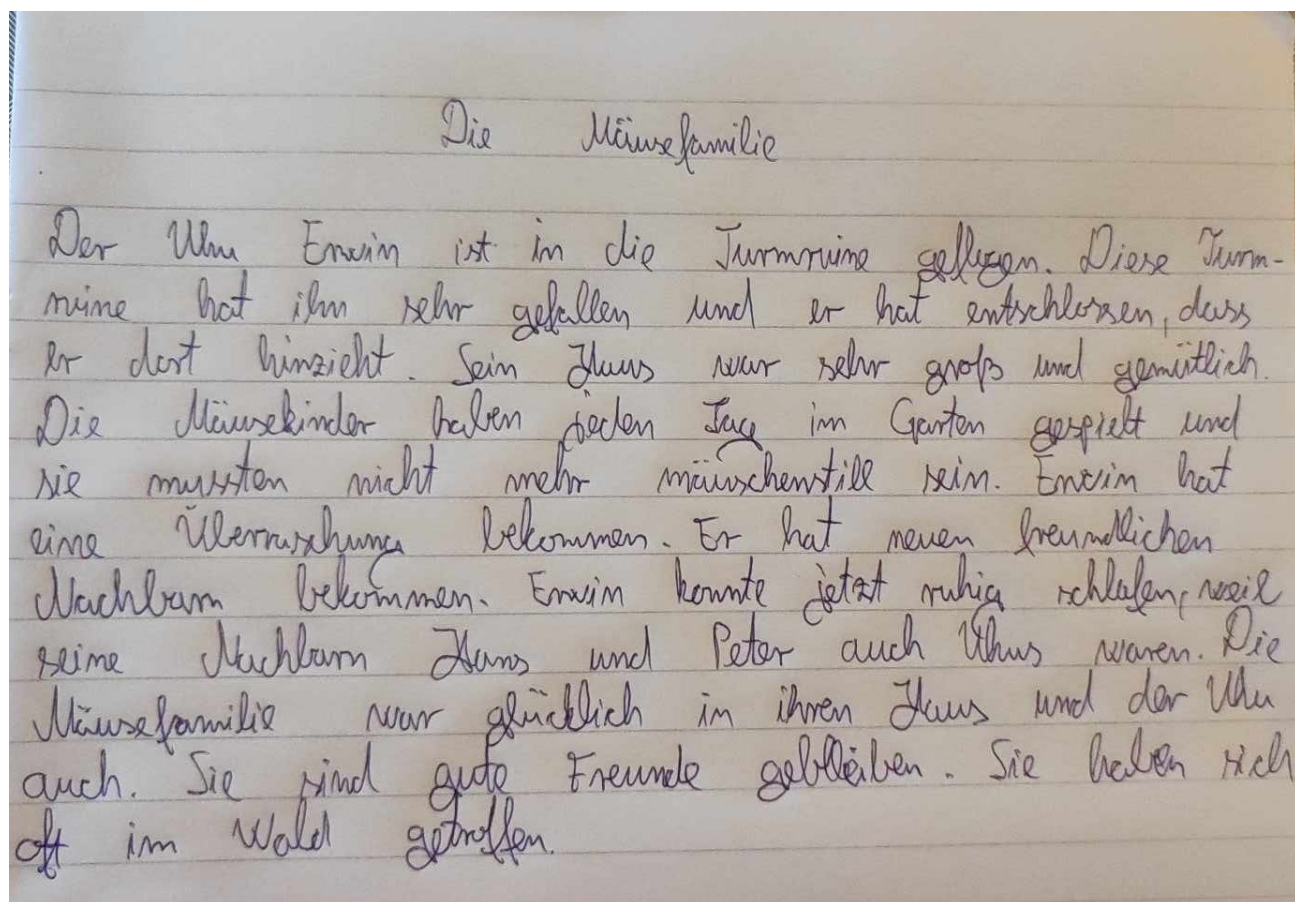 Die Mäusefamilie
Der Uhu Erwin ist in die Turmruine geflogen. Diese Turm-
ruine hat ihm sehr gefallen und er hat entschlossen, dass
er dort hinzieht. Sein Haus war sehr groß und gemütlich.
Die Mäusekinder haben jeden Tag im Garten gespielt und
sie mussten nicht mehr mäuschenstill sein. Erwin hat
eine Überraschung bekommen. Er hat neuen freundlichen
Nachbarn bekommen. Erwin konnte jetzt ruhig schlafen, weil
seine Nachbarn Hans und Peter auch Uhus waren. Die
Mäusefamilie war glücklich in ihren Haus und der Uhu
auch. Sie sind gute Freunde geblieben. Sie haben sich
oft im Wald getroffen.